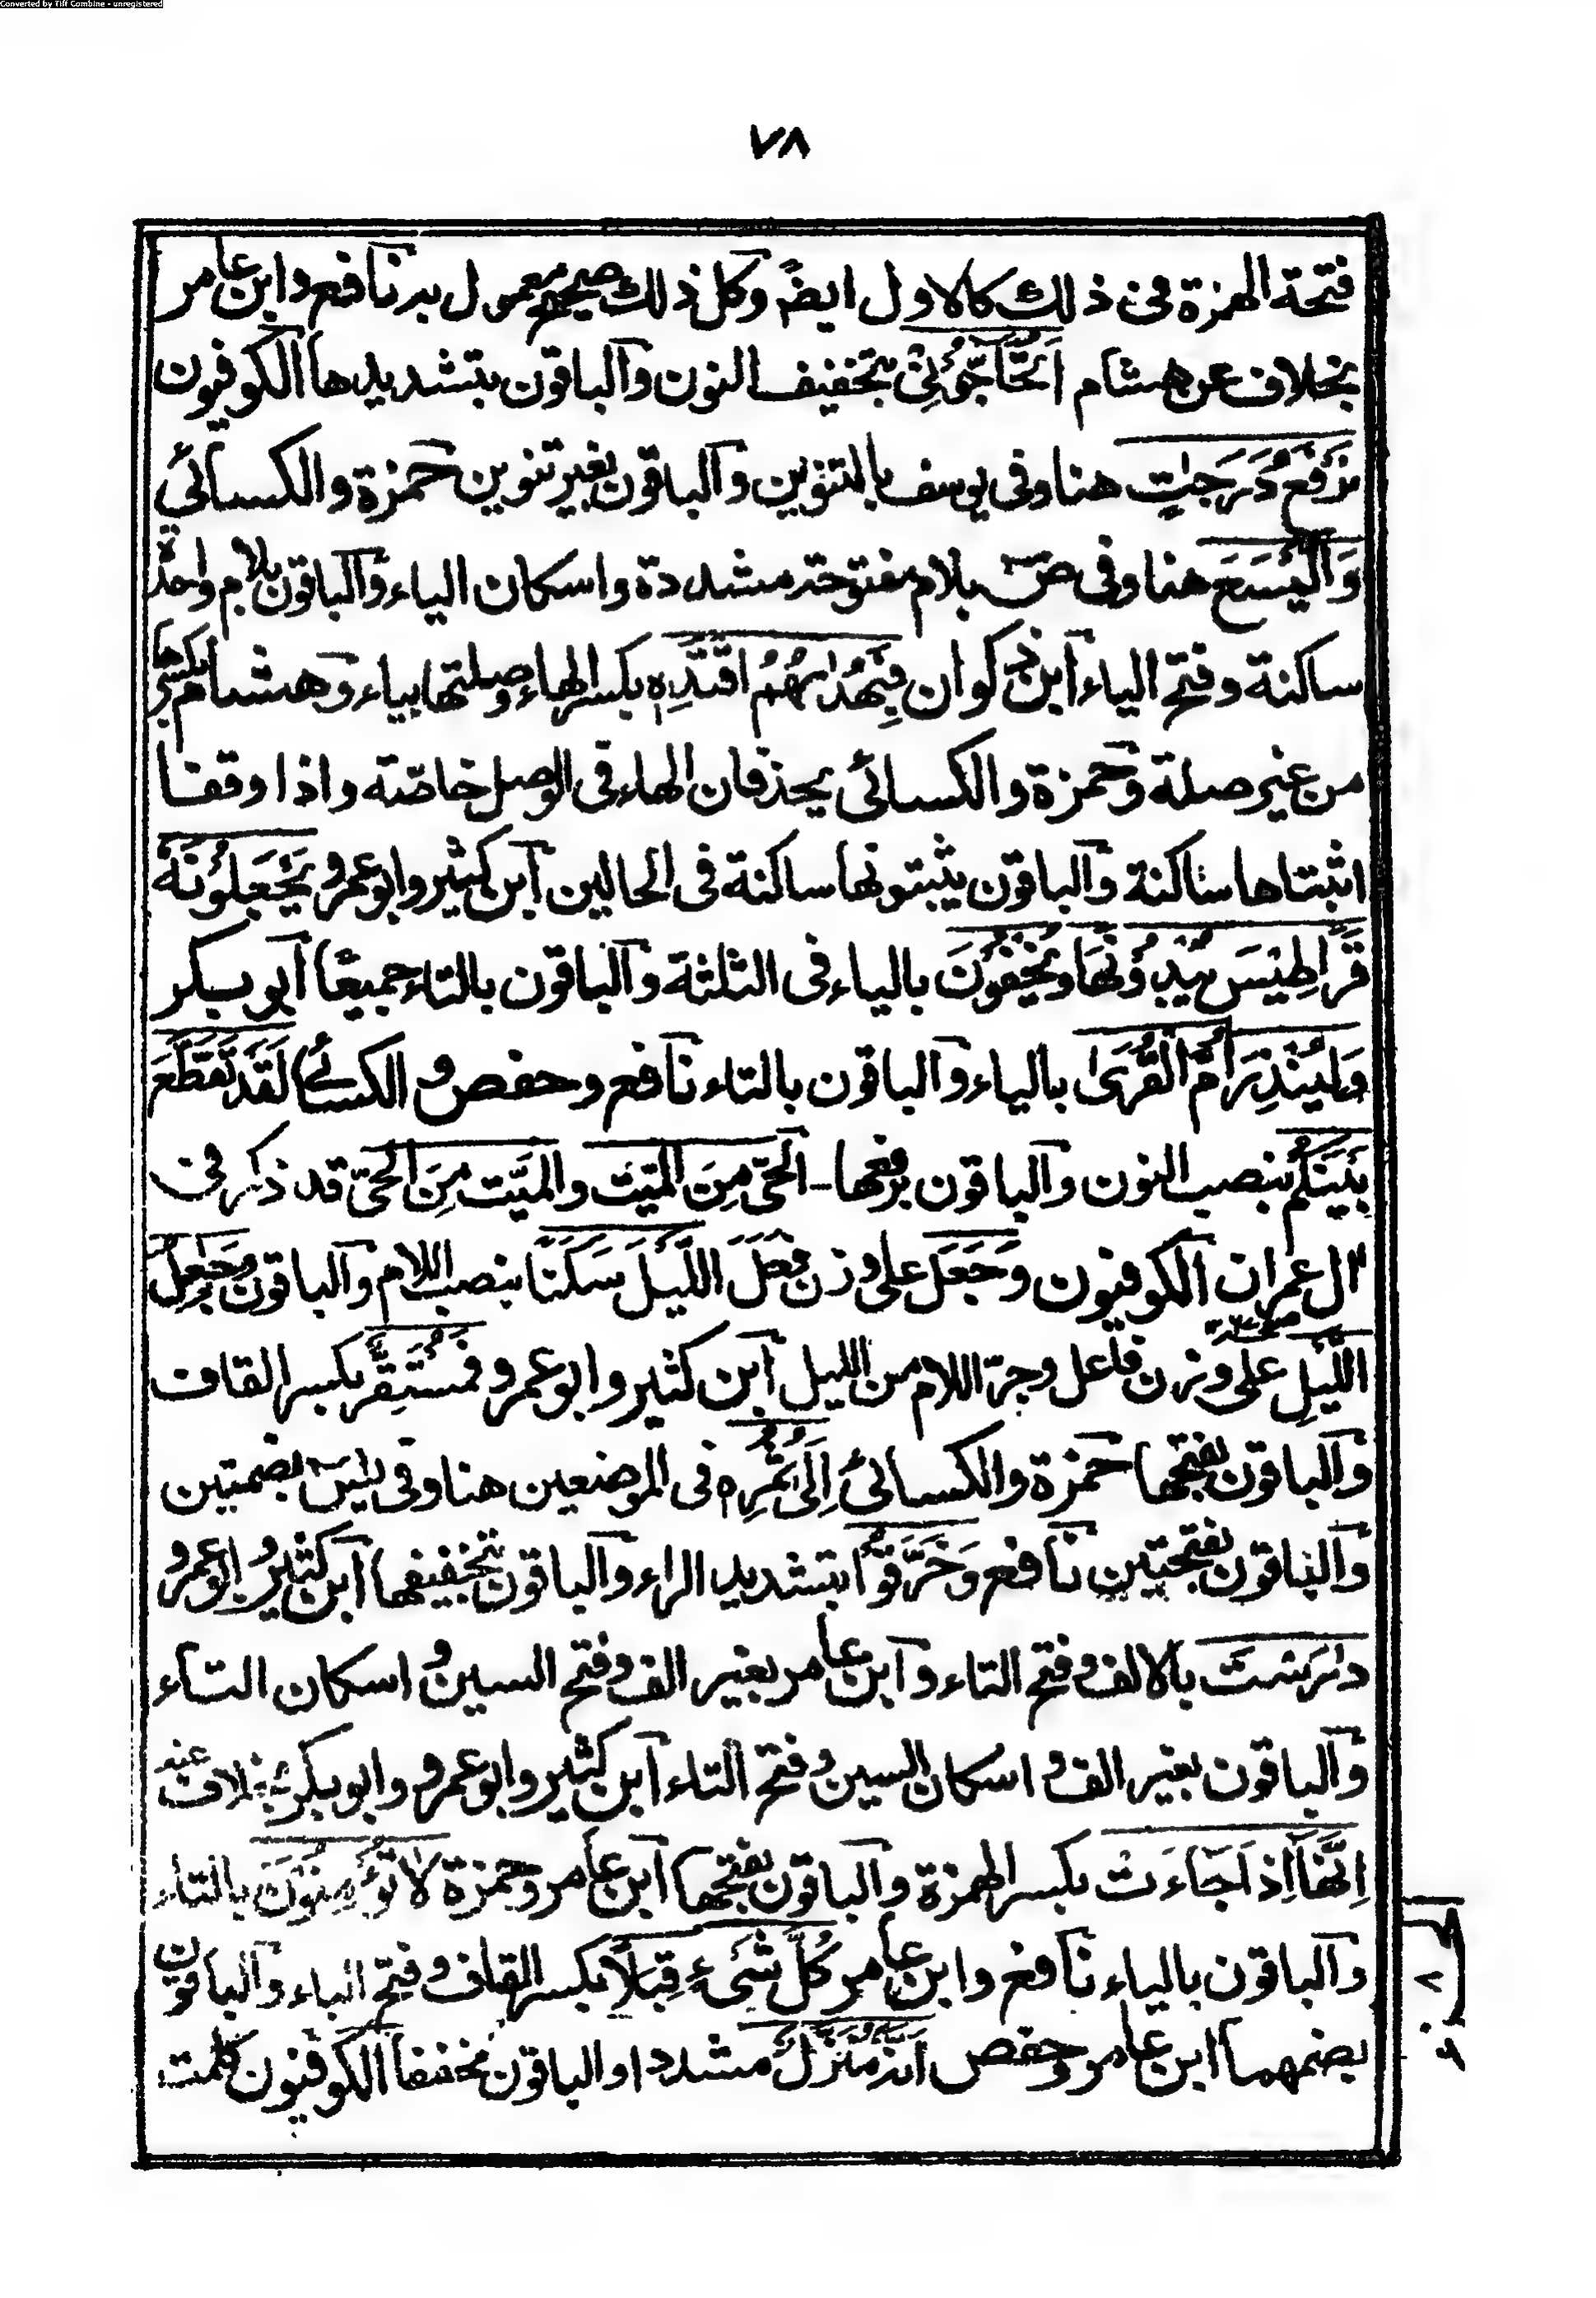 Converted by Tiff Combine - unregistered
٧٨
فتحة الهمزة فى ذلك كالاول ايضً وكل ذلك صحيح معمول به نافع وابن عامر
بخلاف عن هشام اَتُحَاجُّوْنِىْ بتخفيف النون والباقون بتشديدها الكوفيون
نَرْفَعُ دَرَجٰتٍ هنا وفى يوسف بالتنوين والباقون بغير تنوين حمزة والكسائى
وَالَّيْسَعَ هنا وفى صٓ بلام مفتوحة مشددة واسكان الياء والباقون بلام واحدة
ساكنة وفتح الياء ابن ذكوان فَبِهُدٰىهُمُ اقْتَدِهٖ بكسر الهاء وصلتها بياء وهشام بكسرها
من غير صلة وحمزة والكسائى يحذفان الهاء فى الوصل خاصّة واذا وقفا
اثبتاها ساكنة والباقون يثبتونها ساكنة فى الحالين ابن كثير وابو عمرو يَجْعَلُوْنَهٗ
قَرَاطِيْسَ يُبْدُوْنَهَا وَيُخْفُوْنَ بالياء فى الثلثة والباقون بالتاء جميعًا ابو بكر
وَلِيُنْذِرَ اُمَّ الْقُرٰى بالياء والباقون بالتاء نافع وحفص و الكسائے لَقَدْ تَقَطَّعَ
بَيْنَكُمْ بنصب النون والباقون برفعها ـ الْحَىَّ مِنَ الْمَيِّتِ والْمَيِّتَ مِنَ الْحَىِّ قد ذكر فى
اٰل عمران الكوفيون وَجَعَلَ على وزن فَعَلَ اللَّيْلَ سَكَنًا بنصب اللام والباقون وَجٰعِلُ
اللَّيْلِ على وزن فاعل وجرّ اللام من الليل ابن كثير وابو عمرو فَمُسْتَقِرٌّ بكسر القاف
والباقون بفتحها حمزة والكسائىُ اِلٰى ثُمُرِهٖ فى الموضعين هنا وفى يٰسٓ بضمتين
والباقون بفتحتين نافع وَخَرَّقُوْا بتشديد الراء والباقون بتخفيفها ابن كثير و ابو عمرو
دٰرَسْتَ بالالف و فتح التاء وابن عامر بغير الف و فتح السين و اسكان التاء
والباقون بغير الف و اسكان السين و فتح التاء ابن كثير وابو عمرو وابو بكر بخلاف عنه
اِنَّهَا اِذَا جَاءَتْ بكسر الهمزة والباقون بفتحها ابن عامر وحمزة لَا تُؤْمِنُوْنَ بالتاء
والباقون بالياء نافع وابن عامر كُلَّ شَىْءٍ قِبَلًا بكسر القاف و فتح الباء والباقون
بضمهما ابن عامر وحفص اَنَّهٗ مُنَزَّلٌ مشددا والباقون مخففا الكوفيون كلمت